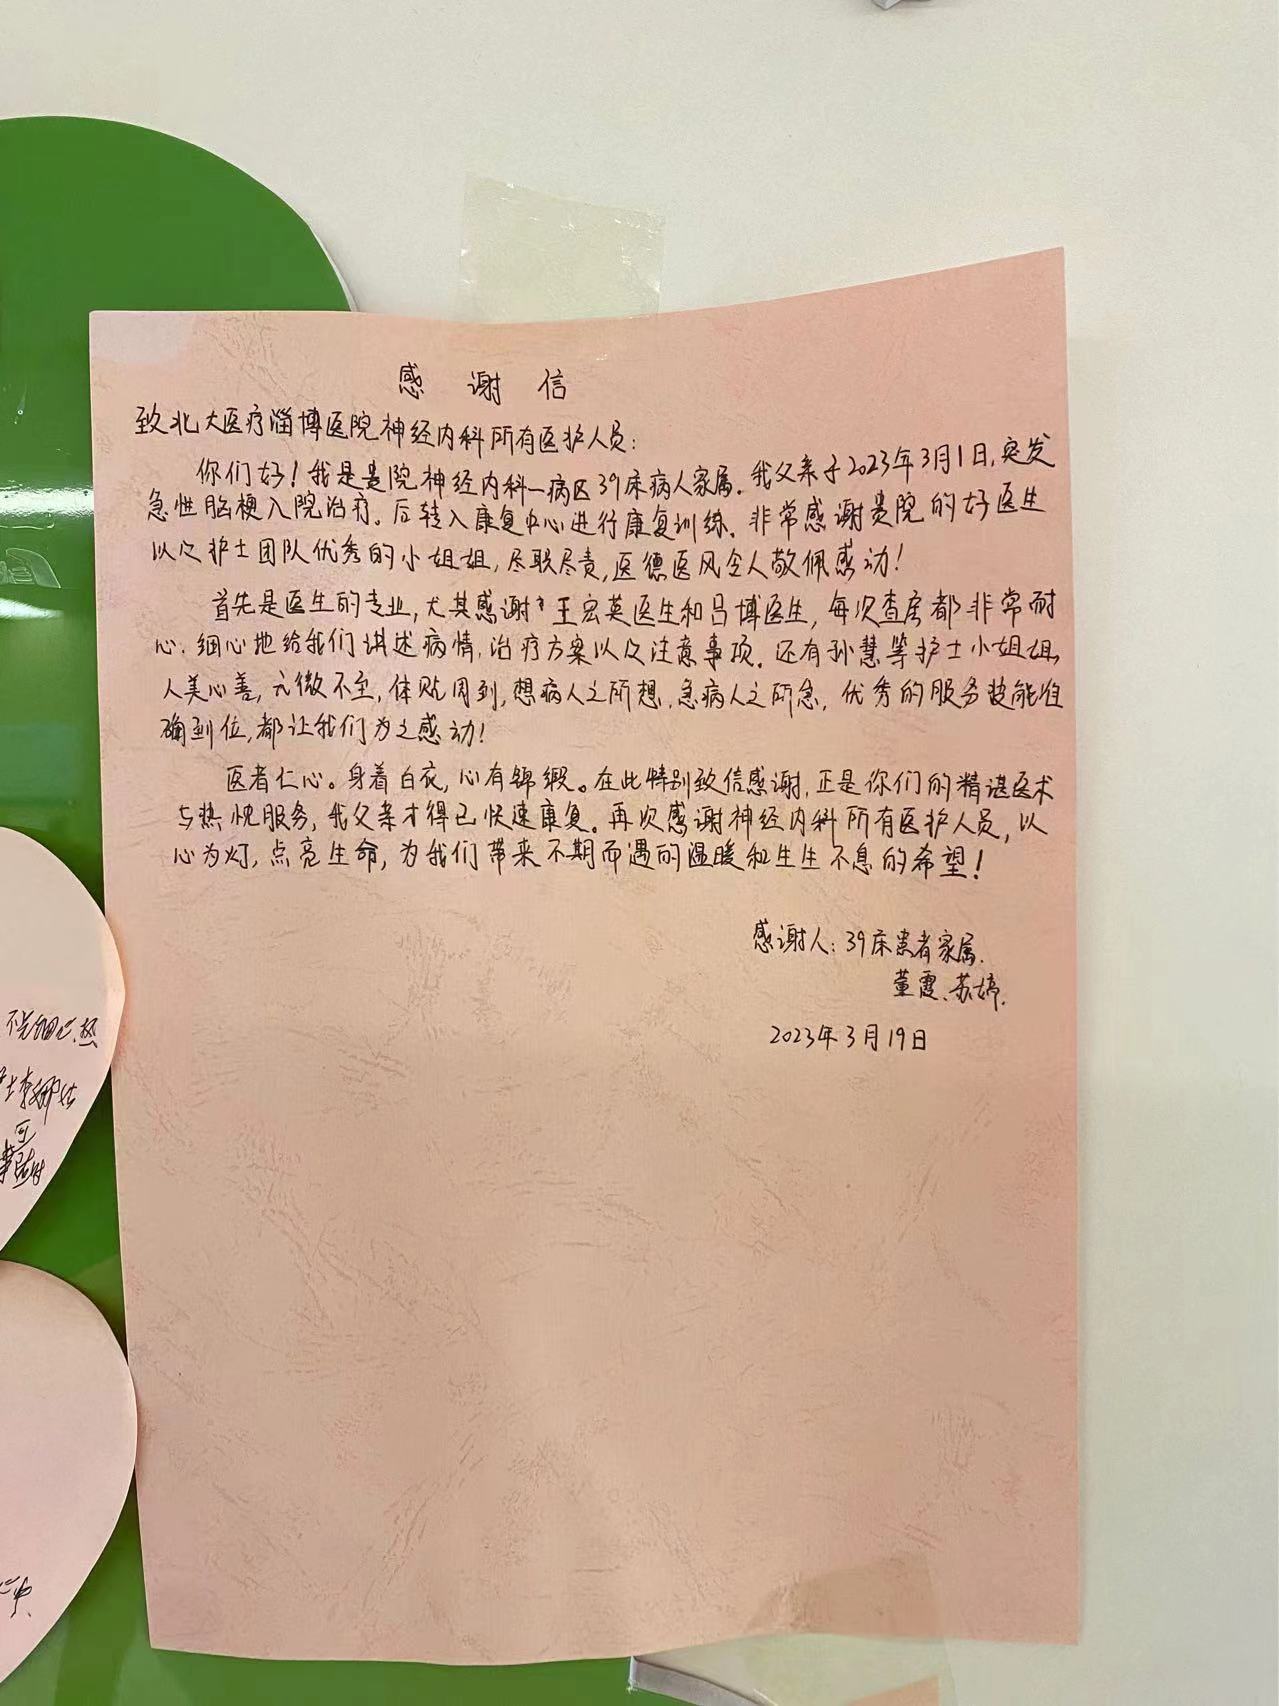 感谢信
致北大医疗淄博医院神经内科所有医护人员:
你们好!我是贵院神经内科一病区39床病人家属.我父亲于2023年3月1日,突发
急性脑梗入院治疗。后转入康复中心进行康复训练.非常感谢贵院的好医生
以及护士团队优秀的小姐姐,尽职尽责,医德医风令人敬佩感动!
首先是医生的专业,尤其感谢王宏英医生和吕博医生,每次查房都非常耐
心.细心地给我们讲述病情,治疗方案以及注意事项.还有孙慧等护士小姐姐,
人美心善,无微不至,体贴周到,想病人之所想,急病人之所急,优秀的服务技能准
确到位,都让我们为之感动!
医者仁心。身着白衣,心有锦缎。在此特别致信感谢,正是你们的精谌医术
与热忱服务,我父亲才得已快速康复。再次感谢神经内科所有医护人员,以
心为灯,点亮生命,为我们带来不期而遇的温暖和生生不息的希望!
感谢人:39床患者家属.
董霞、苏婷.
2023年3月19日